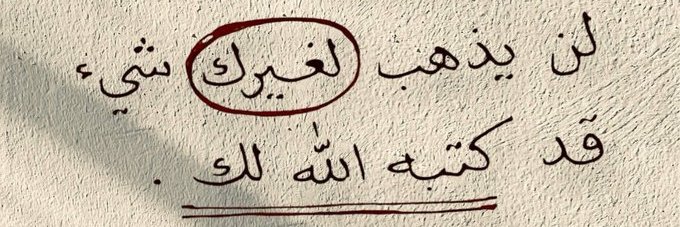 لن يذهب لغيرك شيء
قد كتبه الله لك .